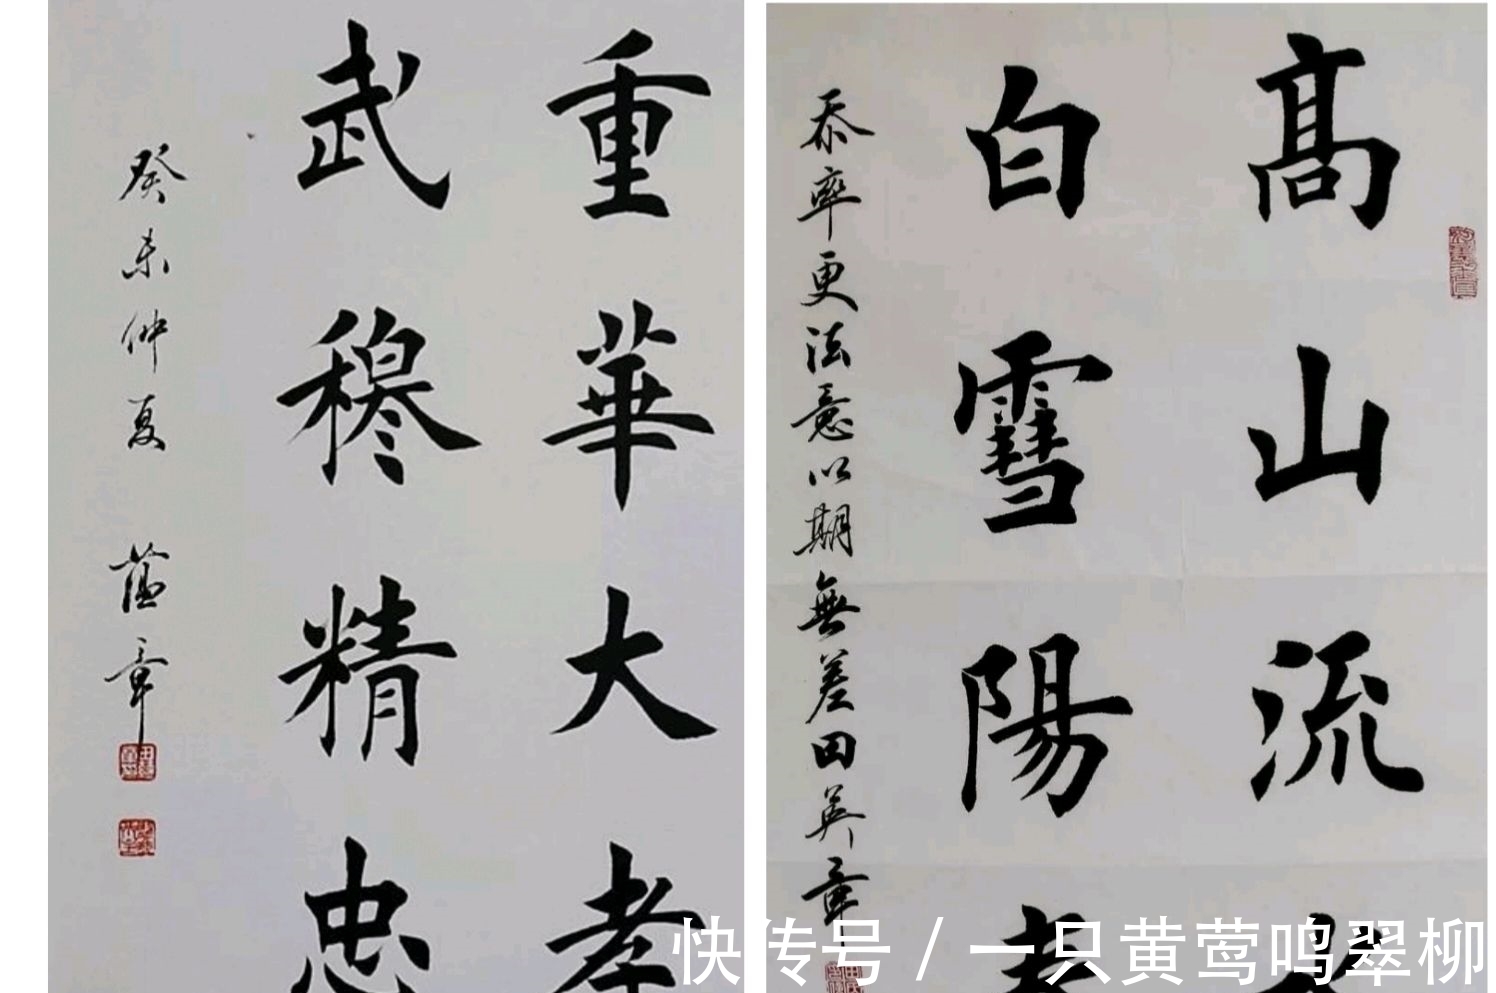 重華大孝
武穆精忠
癸未仲夏 蕴章
髙山流
白雪陽
率更法意以期無差田英章
快传号/一只黄莺鸣翠柳